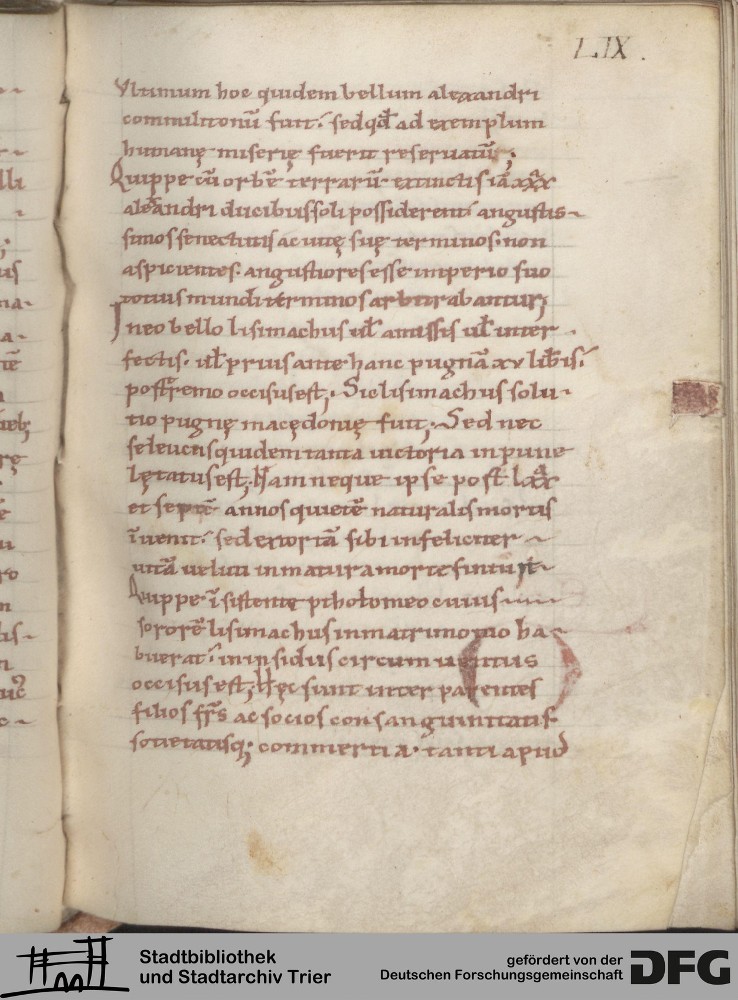 LIX.
Vltimum hoc quidem bellum alexandri
commilitonū fuit. sed qđ ad exemplum
humanę miserię fuerit reseruatū;
Quippe cū orbē terrarū extinctis iā xxx
alexandri ducibus soli possiderent angustis-
simos senectutis ac uitę suę terminos. non
aspicientes. angustiores esse imperio suo
totius mundi terminos arbitrabantur;
In eo bello lisimachus uł amissis uł inter
fectis. uł prius ante hanc pugnā xv liberis.
postremo occisus est; Sic lisimachus solu-
tio pugnę macędonię fuit; Sed nec
seleucus quidem tanta uictoria inpune
lętatus est; Nam neque ipse post lxx
et septē annos quietē naturalis mortis
īuenit. sed extortā sibi infeliciter
uitā ueluti inmatura morte finiuit
Quippe īsistente ptholomeo cuius
sororē lisimachus in matrimonio ha-
buerat. in insidiis circumuentus
occisus est; Hęc sunt inter parentes
filios fr̄s ac socios consanguinitatis
sotietatisq; commertia. tanti apud
Stadtbibliothek
und Stadtarchiv Trier
gefördert von der
Deutschen Forschungsgemeinschaft
DFG